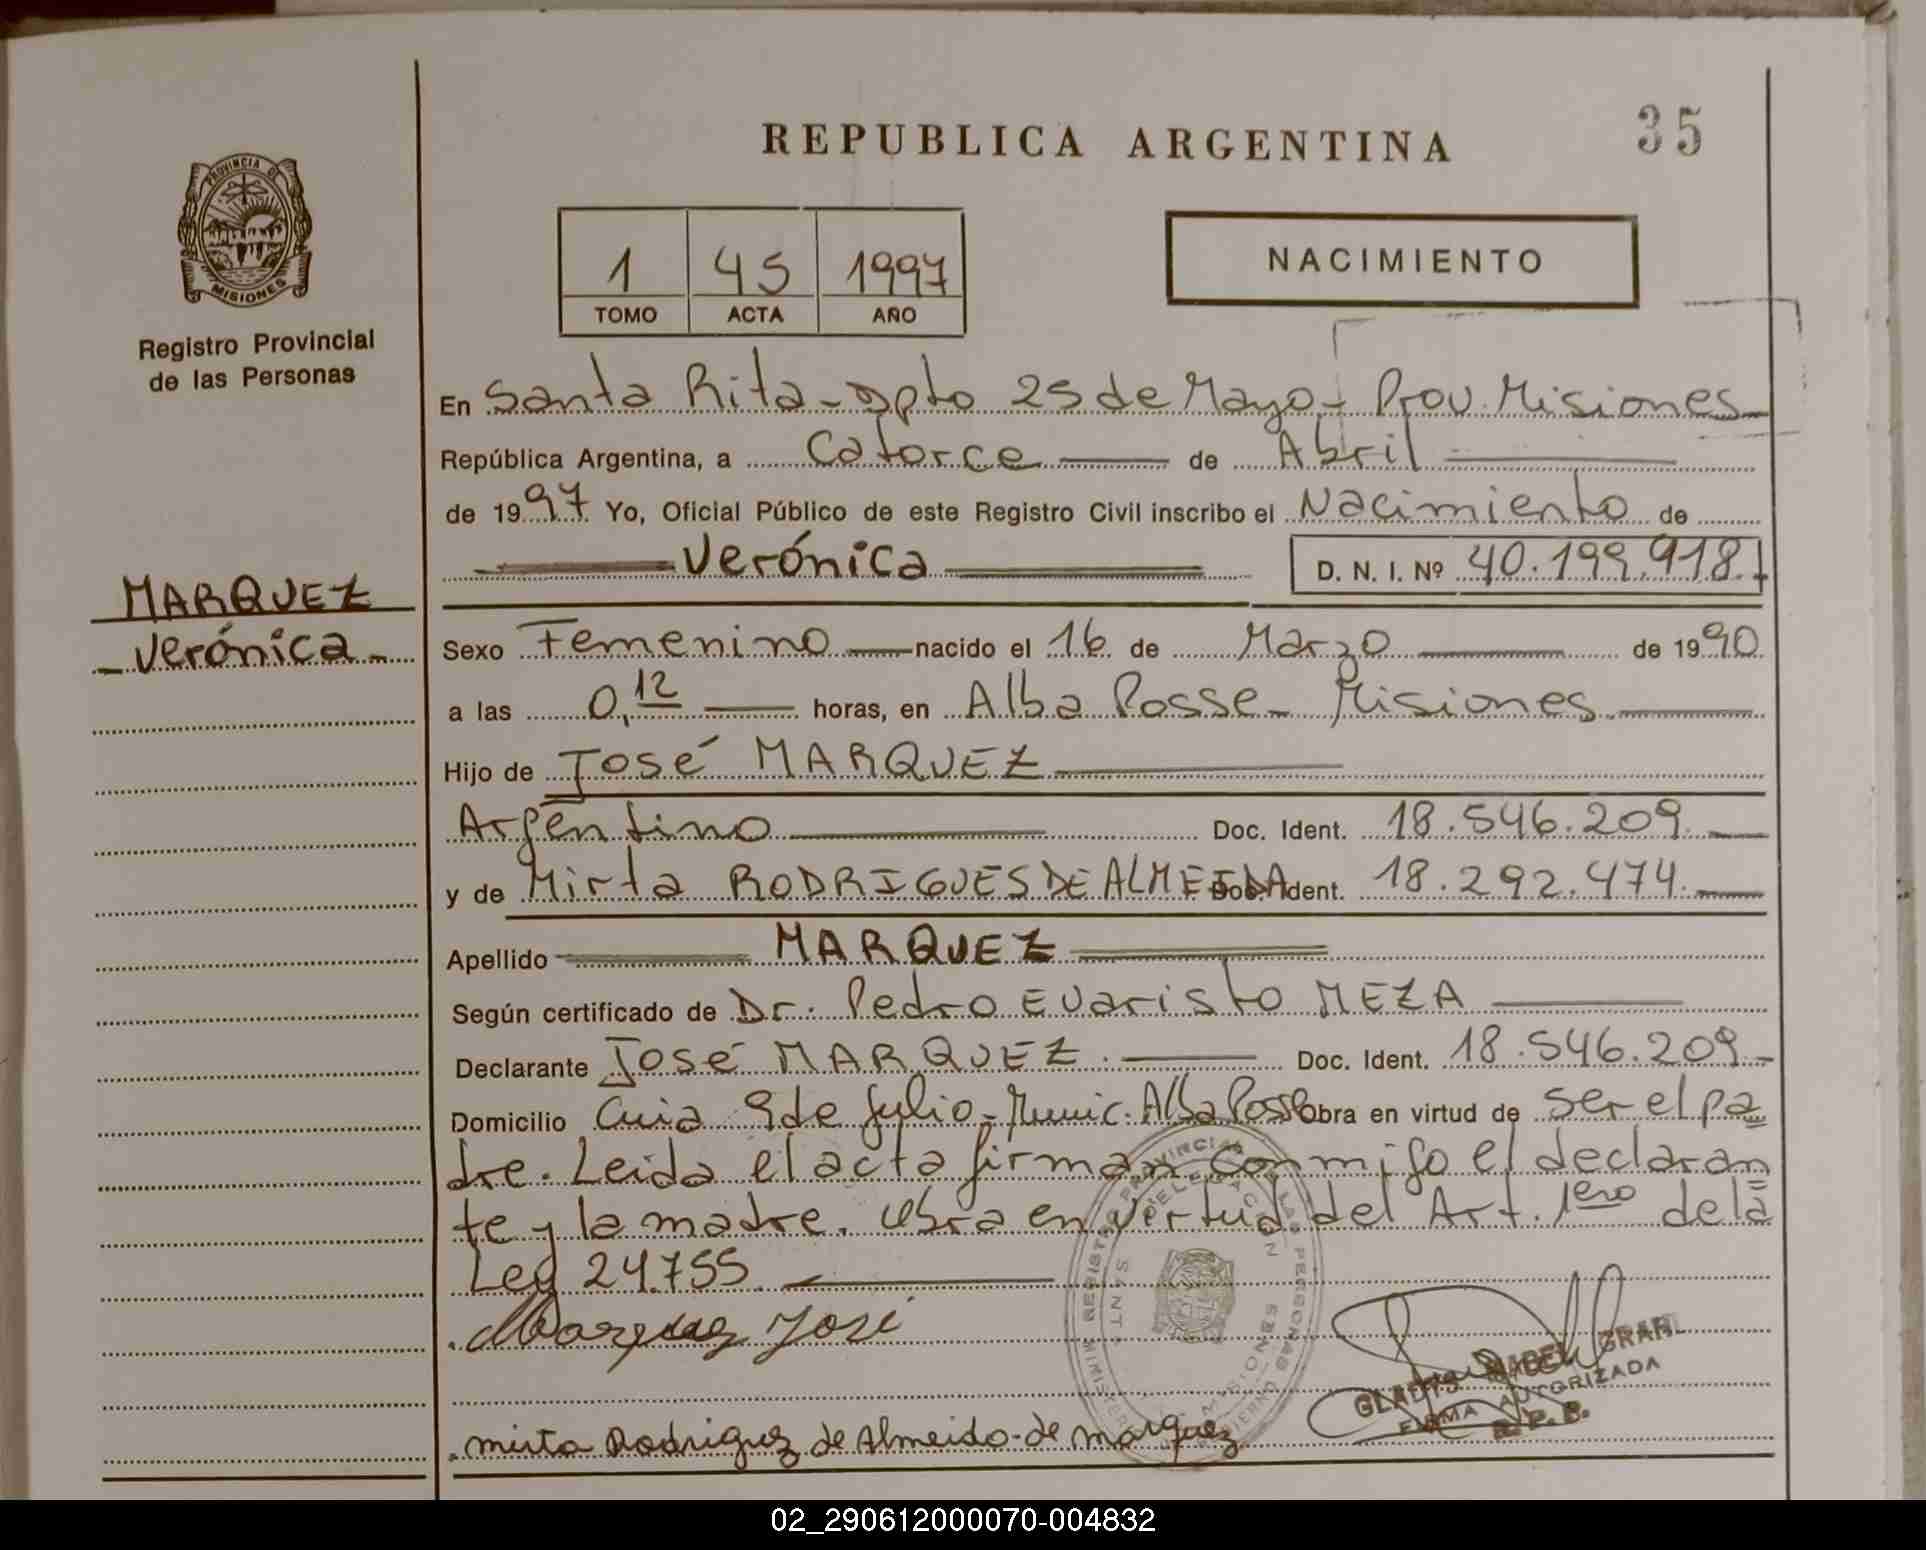 REPUBLICA ARGENTINA
35
PROVINCIA DE
MISIONES
Registro Provincial
de las Personas
1 45 1997
TOMO ACTA AÑO
NACIMIENTO
En Santa Rita - Dpto 25 de Mayo - Prov. Misiones
República Argentina, a Catorce de Abril
de 1997 Yo, Oficial Público de este Registro Civil inscribo el Nacimiento de
Verónica D. N. I. Nº 40.199.918
MARQUEZ
Verónica
Sexo Femenino nacido el 16 de Marzo de 1990
a las 0,12 horas, en Alba Posse - Misiones
Hijo de José MARQUEZ
Argentino Doc. Ident. 18.546.209
y de Mirta RODRIGUES DE ALMEIDA Doc. Ident. 18.292.474
Apellido MARQUEZ
Según certificado de Dr. Pedro Evaristo MEZA
Declarante José MARQUEZ. Doc. Ident. 18.546.209
Domicilio Cuia 9 de Julio - Munic. Alba Posse Obra en virtud de ser el pa
dre. Leida el acta firman conmigo el declaran
te y la madre. Obra en virtud del Art. 1ero de la
Ley 24.755
Marquez José
GLADYS MABEL
FIRMA AUTORIZADA
R. P. P.
mirta Rodriguez de Almeido de marquez
02_290612000070-004832